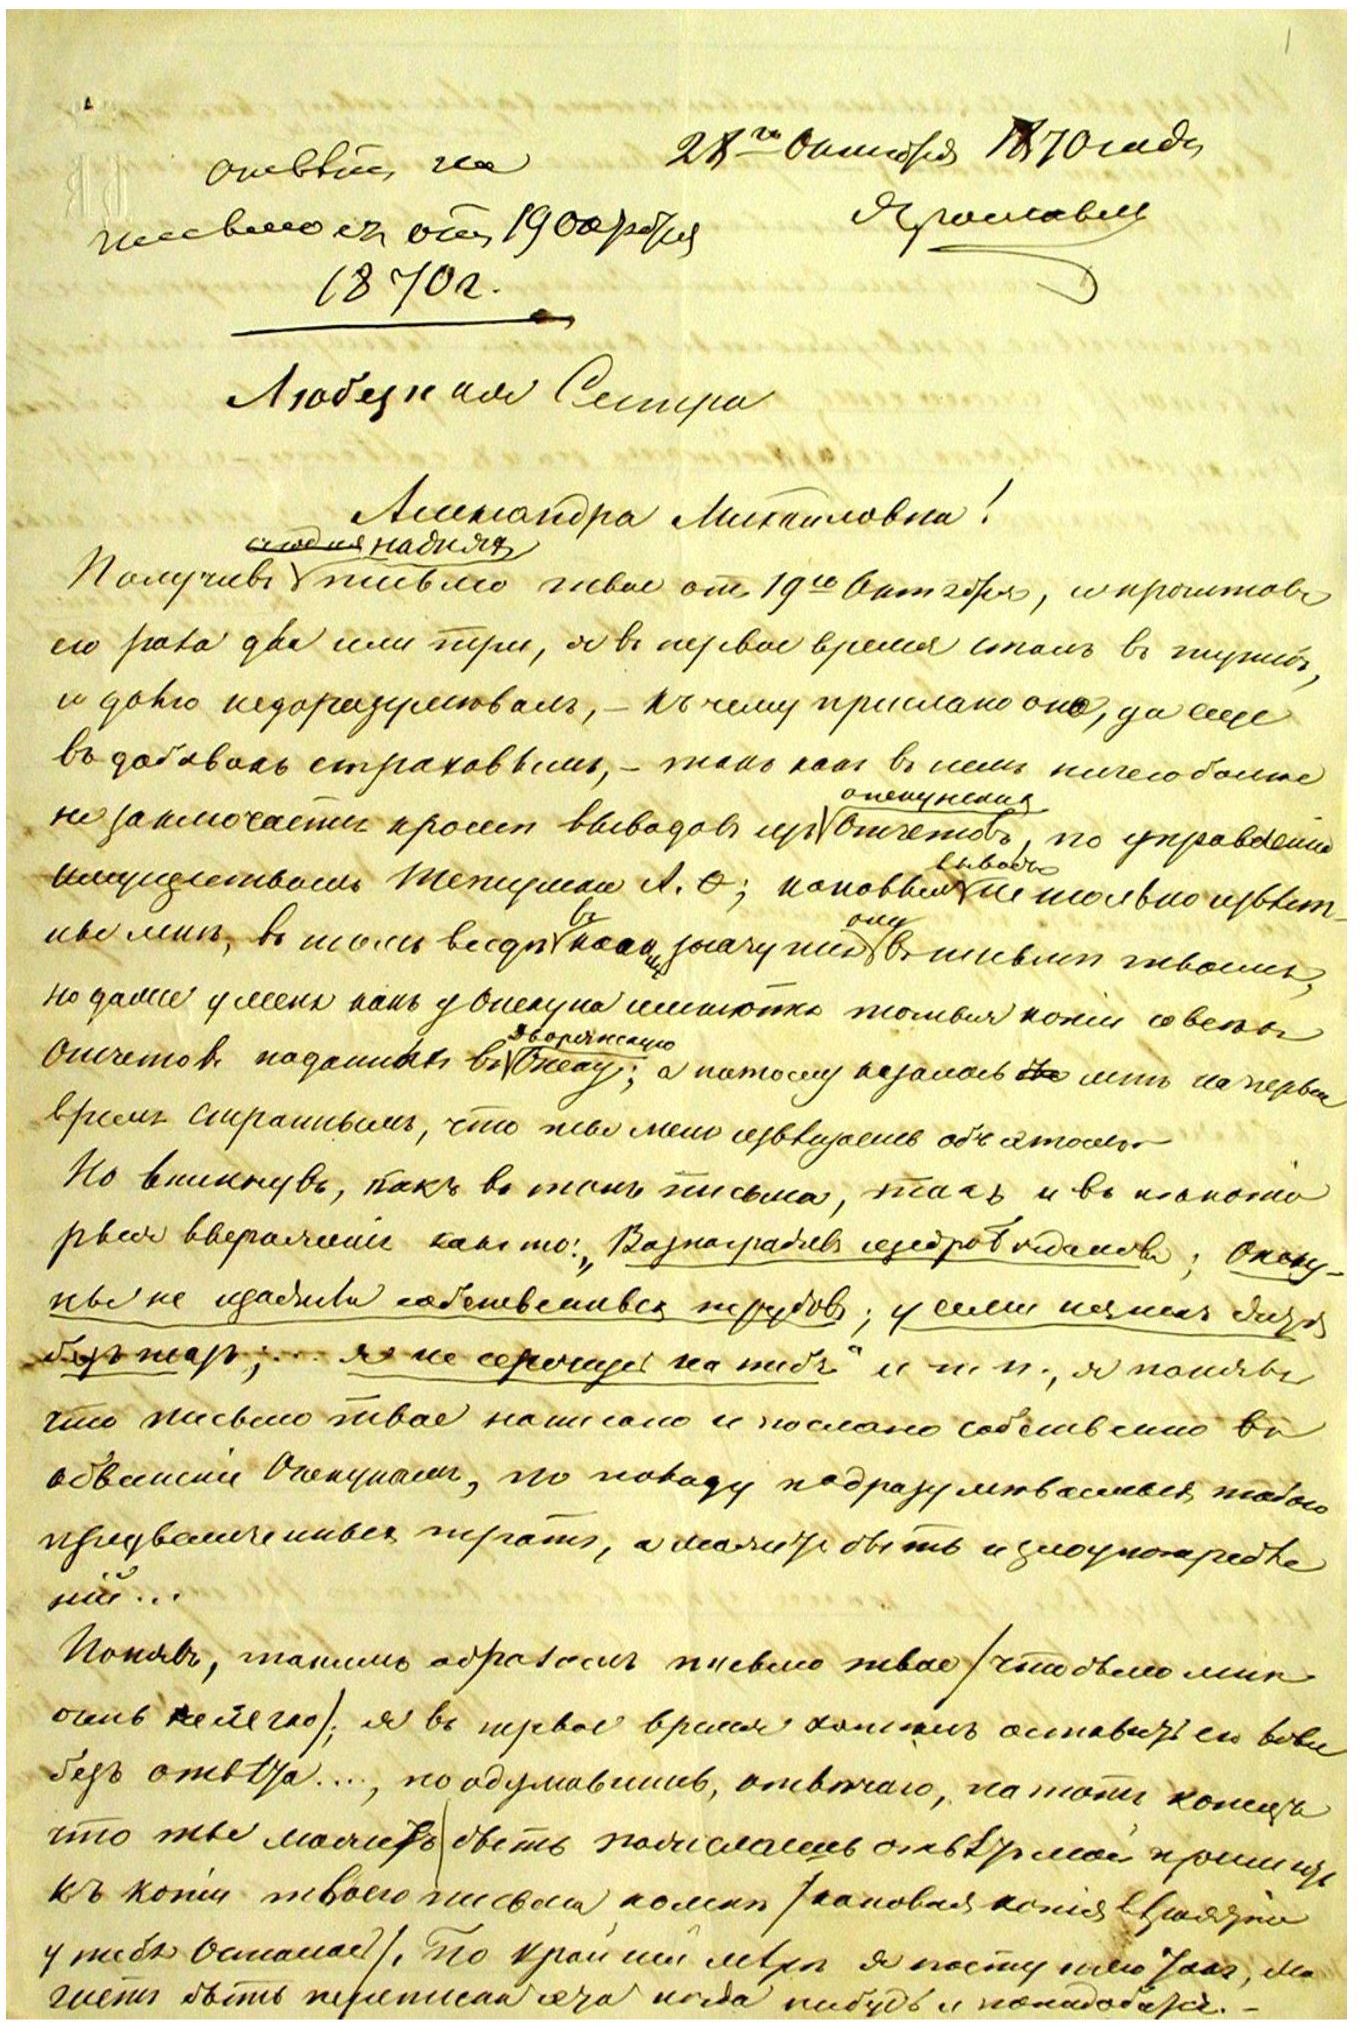 отвѣтъ на
письмо ея отъ 19 Октября
1870 г.
28го Октября 1870 года
Ярославль
Любезная Сестра
Александра Михайловна!
надняхъ
Получивъ письмо твое отъ 19го Октября, и прочитавъ
его раза два или три, я въ первое время сталъ въ тупикъ,
и долго недоразумѣвалъ, – къ чему прислано оно, да еще
въ добавокъ страховымъ, – такъ какъ въ немъ ничего болѣе
опекунскихъ
не заключается кромѣ выводовъ изъ Отчетовъ, по управленію
выводы
имуществомъ А. Ѳ; каковые не только извѣст-
въ
они
ные мнѣ, въ томъ видѣ какъ значутся въ письмѣ твоемъ,
но даже у меня какъ у Опекуна имѣются копіи со всѣхъ
Дворянскую
Отчетовъ поданныхъ въ Опеку; а потому казалось мнѣ на первое
время страннымъ, что ты меня извѣщаешь объ этомъ.
Но вникнувъ, какъ въ тонъ письма, такъ и въ нѣкото
рыя выраженія какъ то: „Вознаградивъ щедро; Опеку-
ны не щадили собственныхъ трудовъ; у семи нянекъ дитя
безъ глазъ;... я не сержусь на тебя“ и т. п., я понялъ
что письмо твое написано и послано собственно въ
обвиненіе Опекунамъ, по поводу подразумѣваемыхъ тобою
преувеличенныхъ тратъ, а можетъ быть и злоупотребле
ній...
Понявъ, такимъ образомъ письмо твое /что было мнѣ
очень нелегко/; я въ первое время хотѣлъ оставить его вовсе
безъ отвѣта...., но одумавшись, отвѣчаю, на тотъ конецъ
что ты можетъ быть пожелаешь отвѣтъ мой пришить
къ копіи твоего письма ко мнѣ /каковая копія вѣроятно
у тебя осталась/. По крайней мѣрѣ я поступаю такъ, мо
жетъ быть переписка эта когда нибудь и понадобится. –